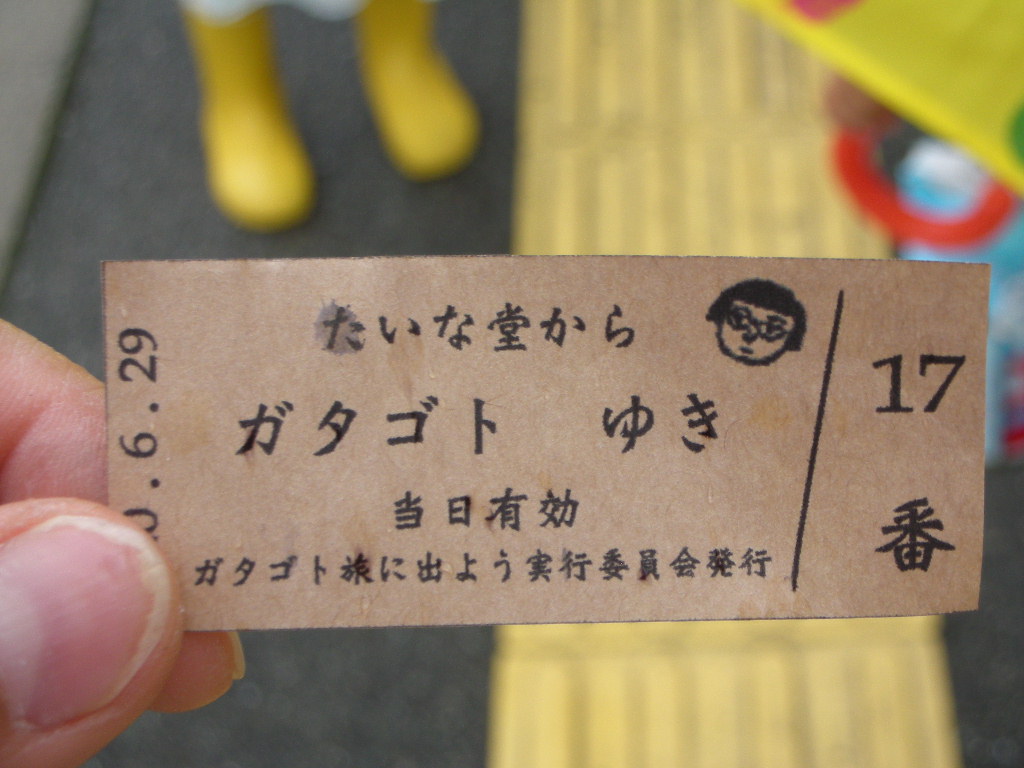 たいな堂から
ガタゴト ゆき
当日有効
ガタゴト旅に出よう実行委員会発行
17
番
.6.29